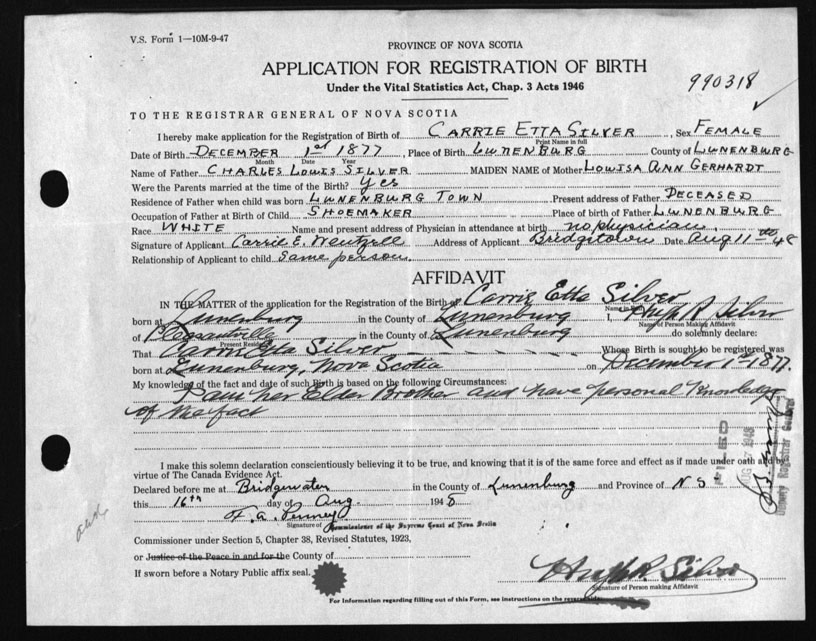 V.S. Form 1—10M-9-47
PROVINCE OF NOVA SCOTIA
APPLICATION FOR REGISTRATION OF BIRTH
Under the Vital Statistics Act, Chap. 3 Acts 1946
990318
TO THE REGISTRAR GENERAL OF NOVA SCOTIA
I hereby make application for the Registration of Birth of CARRIE ETTA SILVER, Sex FEMALE
Print Name in full
Date of Birth DECEMBER 1st 1877, Place of Birth LUNENBURG County of LUNENBURG
Month Date Year
Name of Father CHARLES LOUIS SILVER MAIDEN NAME of Mother LOUISA ANN GERHARDT
Were the Parents married at the time of the Birth? Yes
Residence of Father when child was born LUNENBURG TOWN Present address of Father DECEASED
Occupation of Father at Birth of Child SHOEMAKER Place of birth of Father LUNENBURG
Race WHITE Name and present address of Physician in attendance at birth no physician.
Signature of Applicant Carrie E. Wentzell Address of Applicant Bridgetown Date Aug 11th 48
Relationship of Applicant to child Same person.
AFFIDAVIT
IN THE MATTER of the application for the Registration of the Birth of Carrie Etta Silver
Name in full
born at Lunenburg in the County of Lunenburg I, Hugh R Silver
Name of Person Making Affidavit
of Pleasantville in the County of Lunenburg do solemnly declare:
Present Residence
That Carrie Etta Silver Whose Birth is sought to be registered was
born at Lunenburg, Nova Scotia on December 1st 1877.
My knowledge of the fact and date of such Birth is based on the following Circumstances:
I am her Elder Brother and have personal Knowledge
of the fact
FILED
AUG 1948
Deputy Registrar General
I make this solemn declaration conscientiously believing it to be true, and knowing that it is of the same force and effect as if made under oath and by
virtue of The Canada Evidence Act.
Declared before me at Bridgewater in the County of Lunenburg and Province of N S
this 16th day of Aug 1948
F. A. Penney
Signature of Commissioner of the Supreme Court of Nova Scotia
Commissioner under Section 5, Chapter 38, Revised Statutes, 1923,
or Justice of the Peace in and for the County of
If sworn before a Notary Public affix seal.
Hugh R. Silver
Signature of Person making Affidavit
For Information regarding filling out of this Form, see instructions on the reverse side